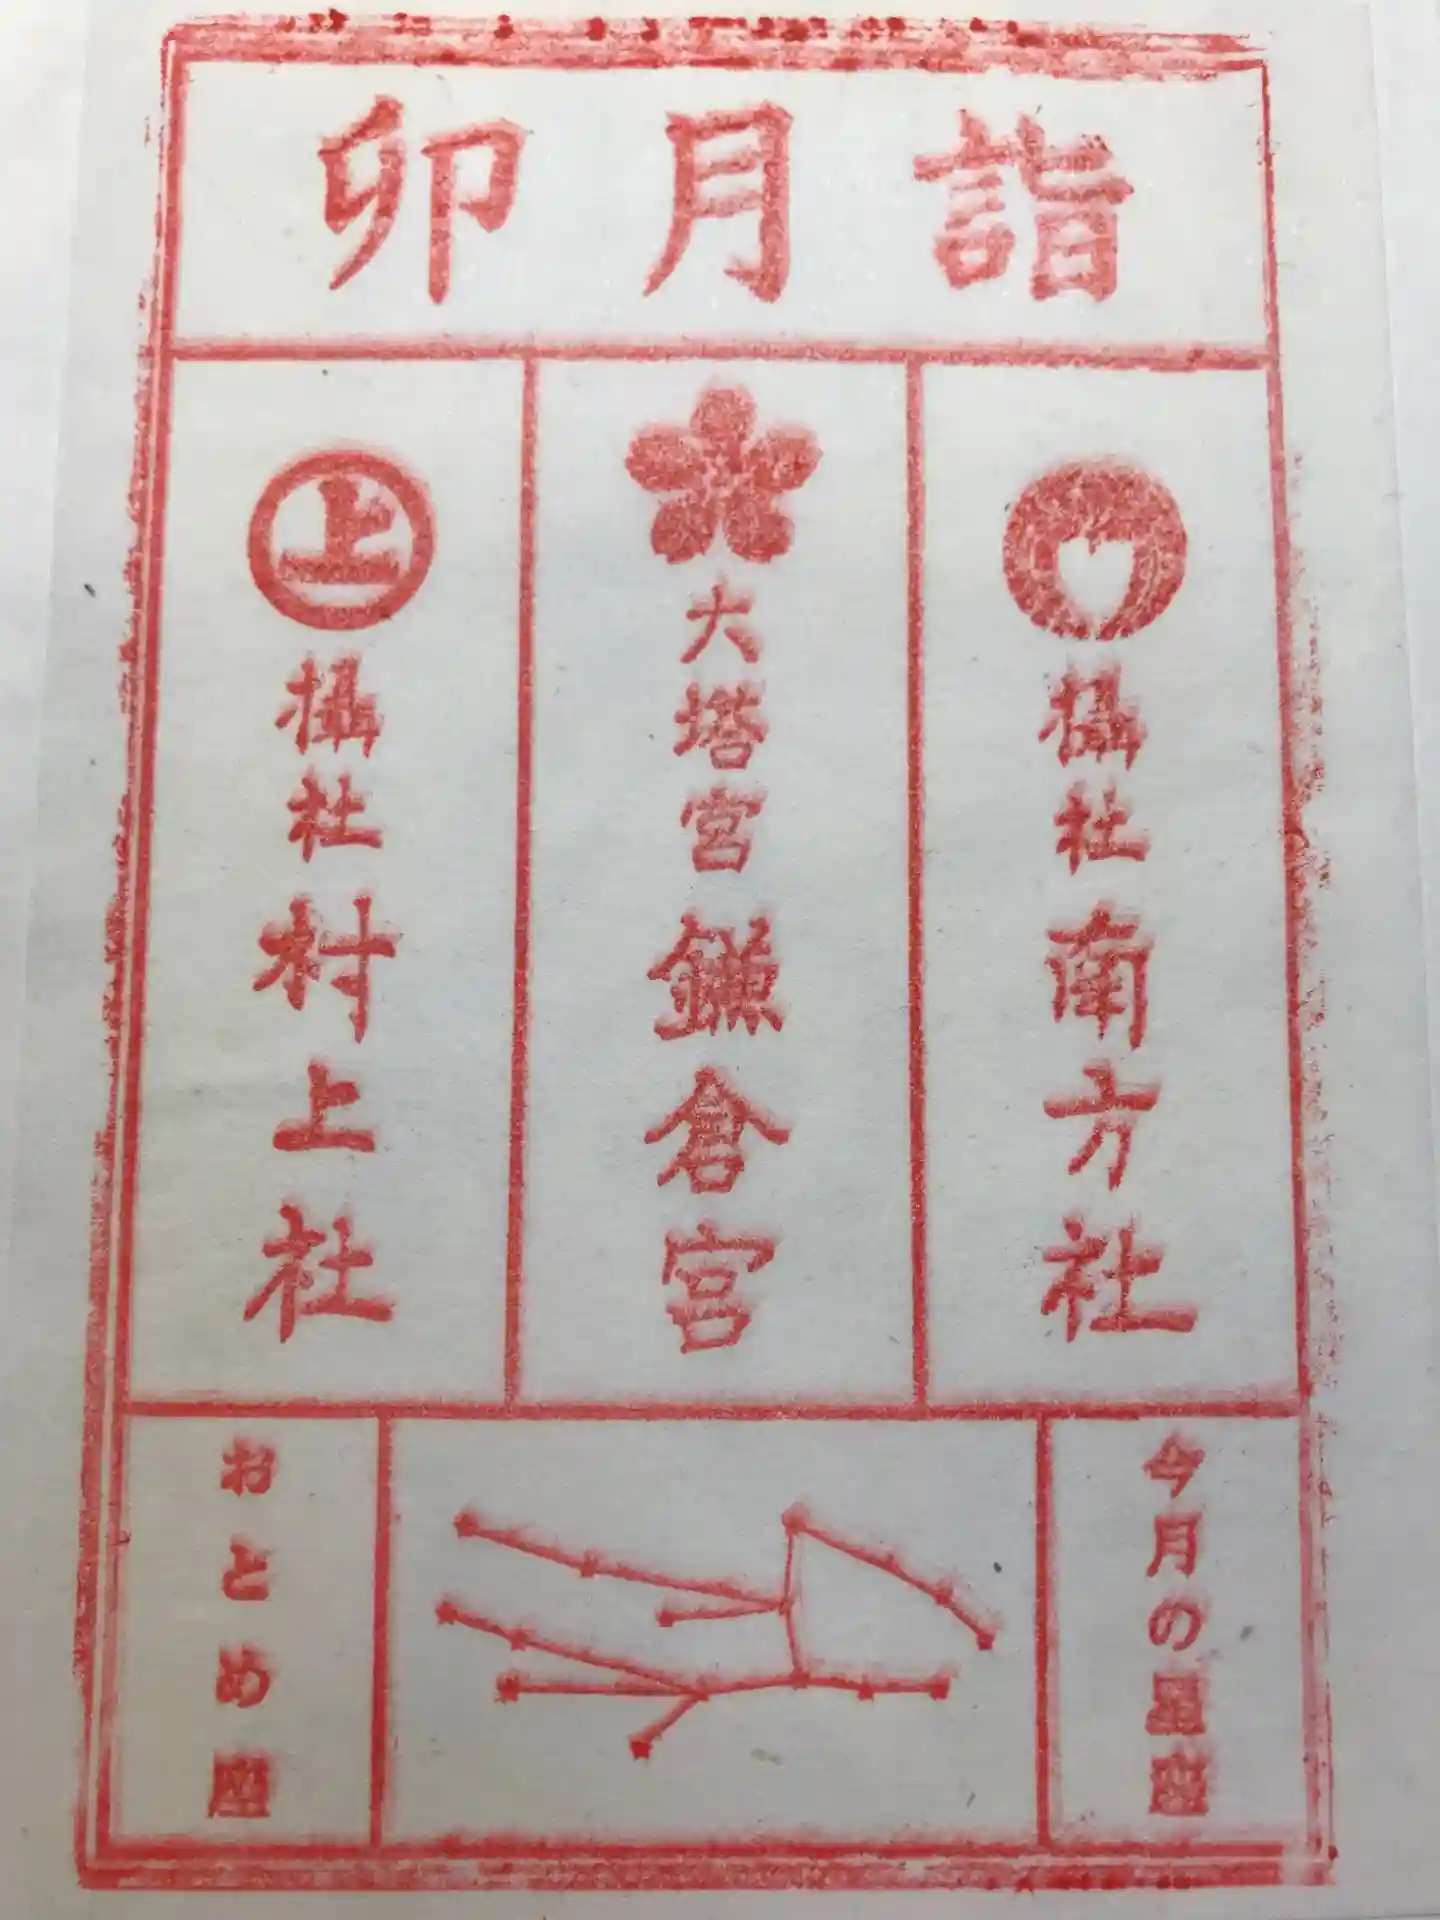 卯月詣
攝社南方社
大塔宮鎌倉宮
上
攝社村上社
今月の星座
おとめ座